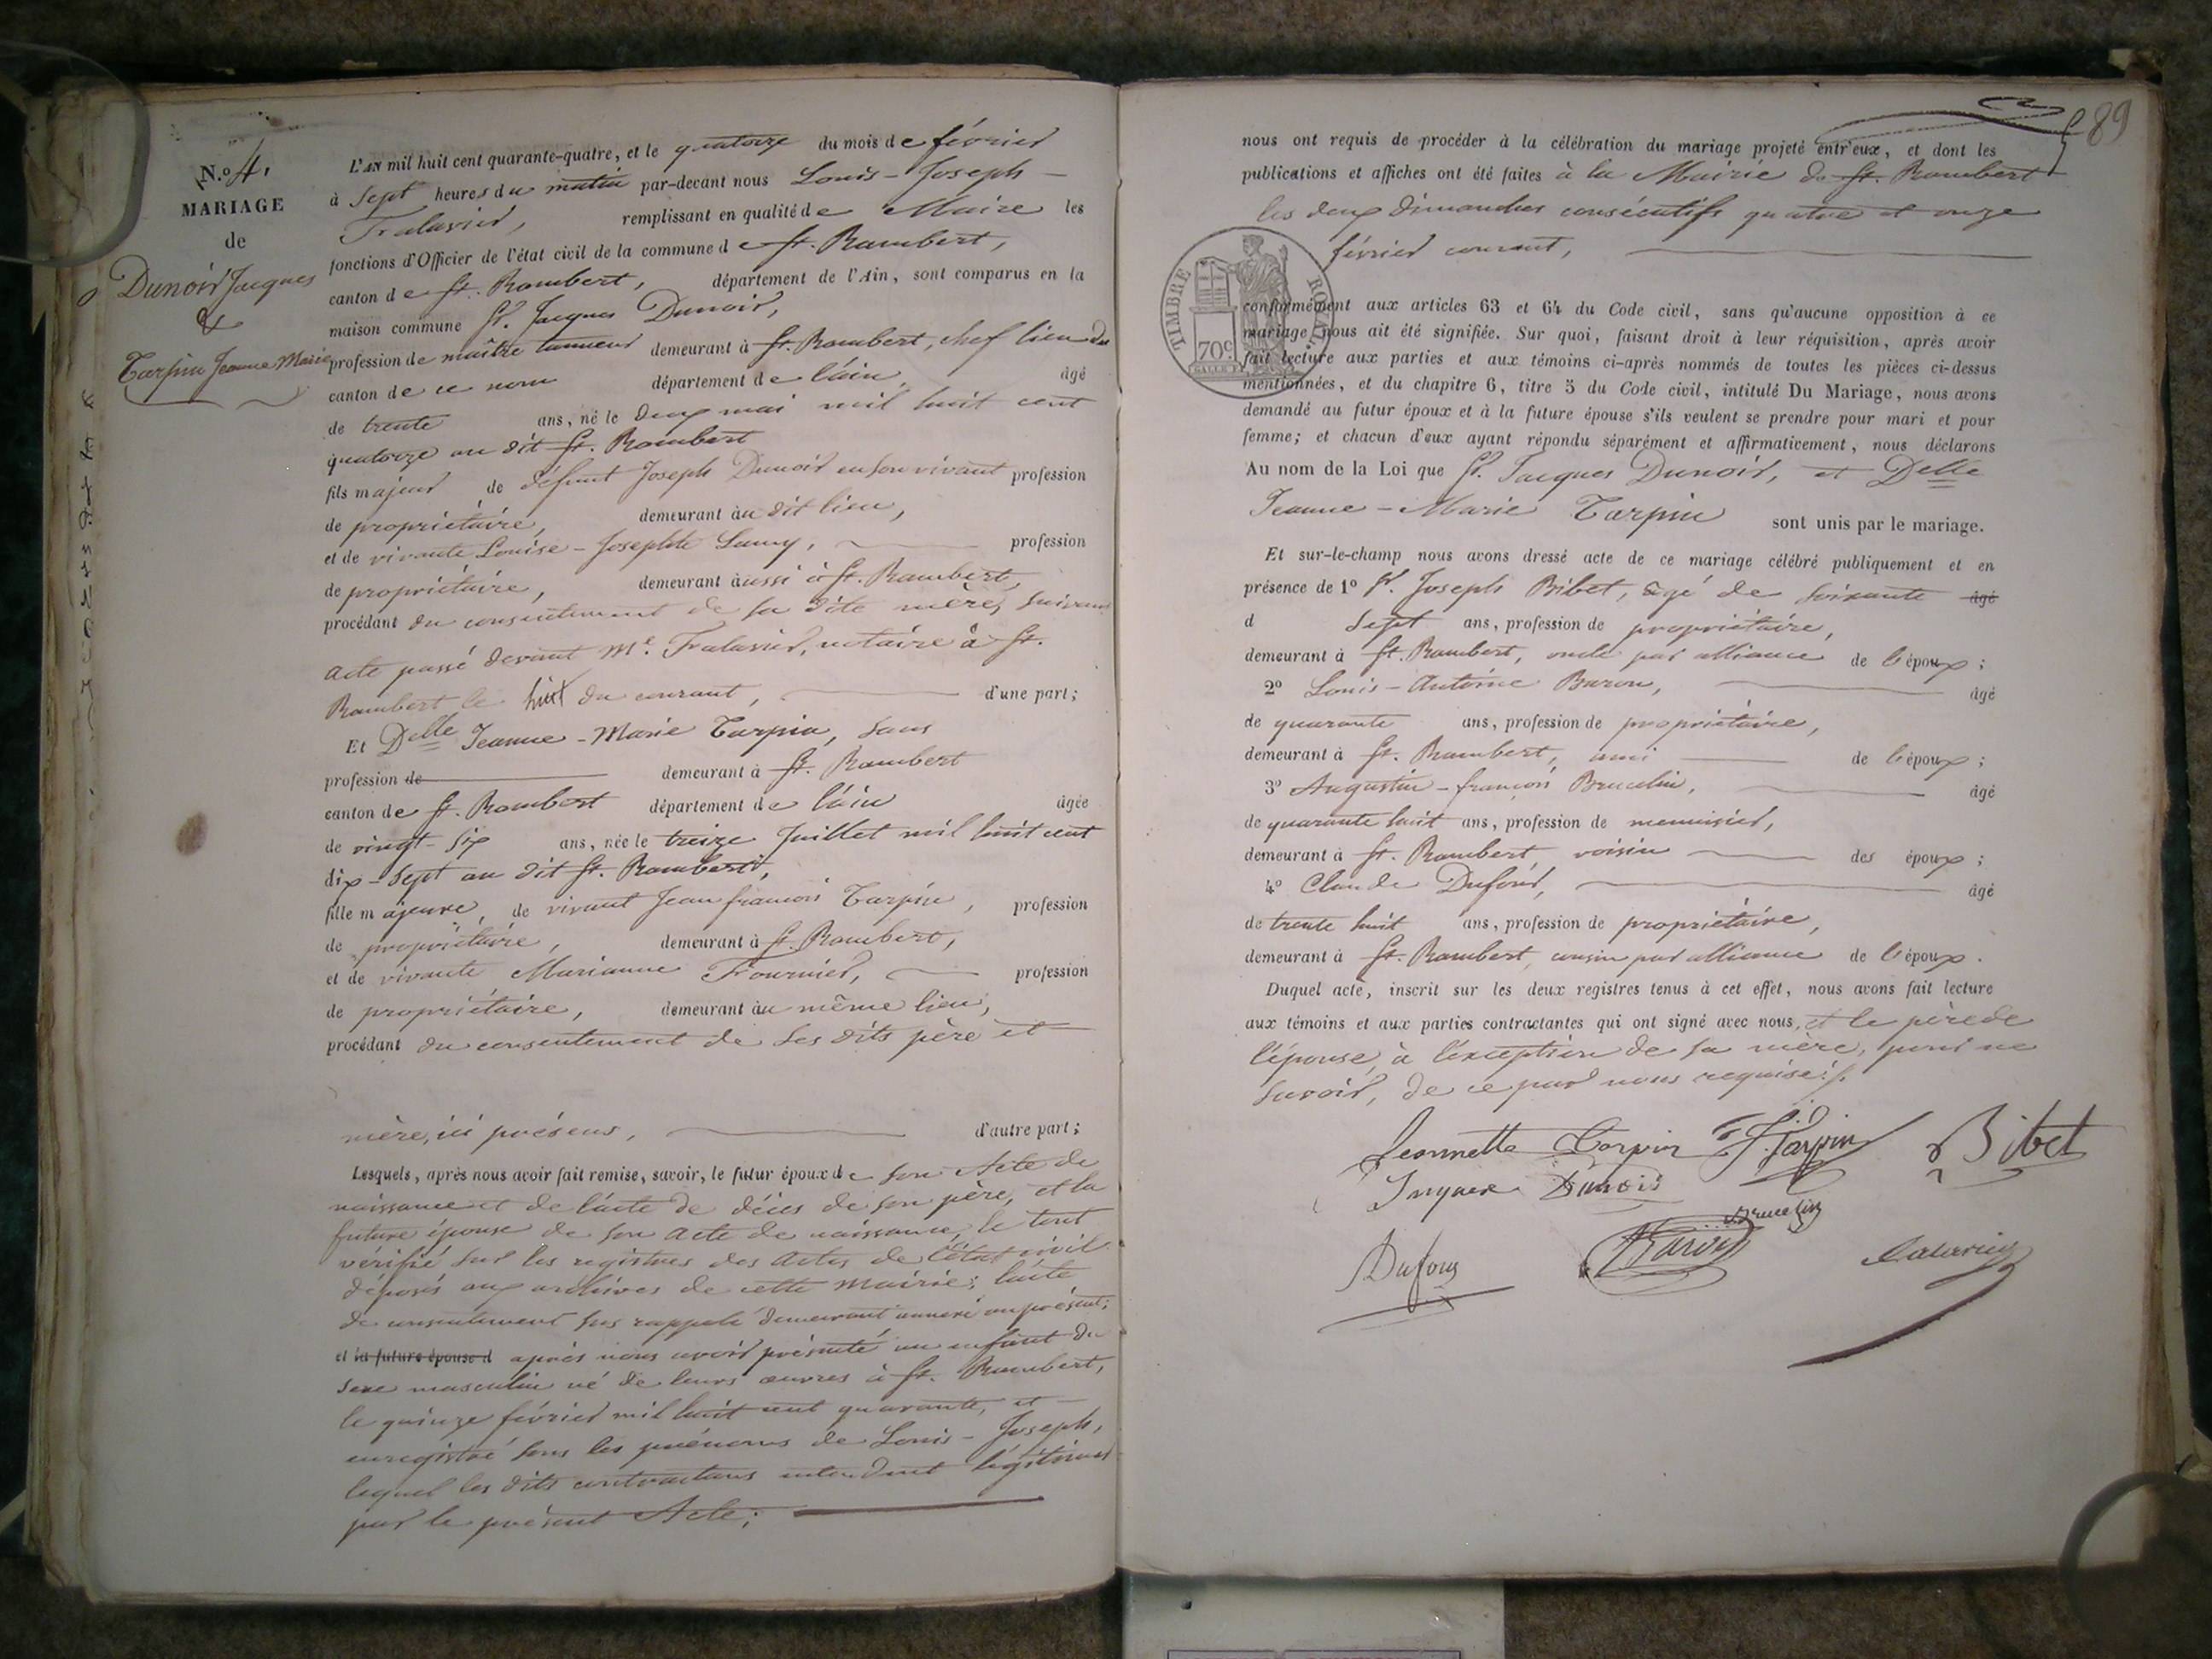 N.º 4,
MARIAGE
de
Dunoir Jacques
&
Tarpin Jeanne Marie
L'AN mil huit cent quarante-quatre, et le quatorze du mois de février
à sept heures du matin par-devant nous Louis-Joseph
remplissant en qualité de Maire les
fonctions d'Officier de l'état civil de la commune de St. Rambert,
canton de St. Rambert, département de l'Ain, sont comparus en la
maison commune Sr. Jacques Dunoir,
profession de maître tanneur demeurant à St. Rambert, chef lieu du
canton de ce nom département de l'ain, âgé
de trente ans, né le deux mai mil huit cent
quatorze au dit St. Rambert
fils majeur de défunt Joseph Dunoir en son vivant profession
de propriétaire, demeurant au dit lieu,
et de vivante Louise-Josephte profession
de propriétaire, demeurant aussi à St. Rambert,
procédant du consentement de sa dite mère, suivant
acte passé devant Me. notaire à St.
Rambert le huit du courant, d'une part;
Et Delle Jeanne-Marie Tarpin, sans
profession de demeurant à St. Rambert
canton de St. Rambert département de l'ain âgée
de vingt-six ans, née le treize Juillet mil huit cent
dix-sept au dit St. Rambert,
fille majeure, de vivant Jean françois Tarpin, profession
de propriétaire, demeurant à St. Rambert,
et de vivante Marianne Fournier, profession
de propriétaire, demeurant au même lieu,
procédant du consentement de ses dits père et
mère, ici présens, d'autre part;
Lesquels, après nous avoir fait remise, savoir, le futur époux de son Acte de
naissance et de l'acte de décès de son père, et la
future épouse de son acte de naissance, le tout
vérifié sur les registres des actes de l'état civil
déposés aux archives de cette Mairie; l'acte
de consentement sus rappelé demeurant annexé au présent;
et la future épouse d après nous avoir présenté un enfant du
sexe masculin né de leurs œuvres à St. Rambert,
le quinze février mil huit cent quarante, et
enregistré sous les prénoms de Louis-Joseph,
lequel les dits contractans entendent légitimer
par le présent Acte;
89
nous ont requis de procéder à la célébration du mariage projeté entr'eux, et dont les
publications et affiches ont été faites à la Mairie de St. Rambert
les deux dimanches consécutifs quatre et onze
février courant,
TIMBRE ROYAL
70c.
conformément aux articles 63 et 64 du Code civil, sans qu'aucune opposition à ce
mariage nous ait été signifiée. Sur quoi, faisant droit à leur réquisition, après avoir
fait lecture aux parties et aux témoins ci-après nommés de toutes les pièces ci-dessus
mentionnées, et du chapitre 6, titre 5 du Code civil, intitulé Du Mariage, nous avons
demandé au futur époux et à la future épouse s'ils veulent se prendre pour mari et pour
femme; et chacun d'eux ayant répondu séparément et affirmativement, nous déclarons
Au nom de la Loi que Sr. Jacques Dunoir, et Delle
Jeanne-Marie Tarpin sont unis par le mariage.
Et sur-le-champ nous avons dressé acte de ce mariage célébré publiquement et en
présence de 1º Sr. Joseph Bibet, âgé de soixante âgé
d sept ans, profession de propriétaire,
demeurant à St. Rambert, oncle par alliance de l'époux;
2º Louis-Antoine Baron, âgé
de quarante ans, profession de propriétaire,
demeurant à St. Rambert, ami de l'époux;
3º Augustin-françois Brucelin, âgé
de quarante huit ans, profession de menuisier,
demeurant à St. Rambert, voisin des époux;
4º Claude Dufour, âgé
de trente huit ans, profession de propriétaire,
demeurant à St. Rambert, cousin par alliance de l'époux.
Duquel acte, inscrit sur les deux registres tenus à cet effet, nous avons fait lecture
aux témoins et aux parties contractantes qui ont signé avec nous, et le père de
l'épouse, à l'exception de sa mère, pour ne
savoir, de ce par nous requise./.
Jeannette Tarpin J.f. Tarpin Bibet
Jacques Dunoir
Brucelin
Dufour Baron